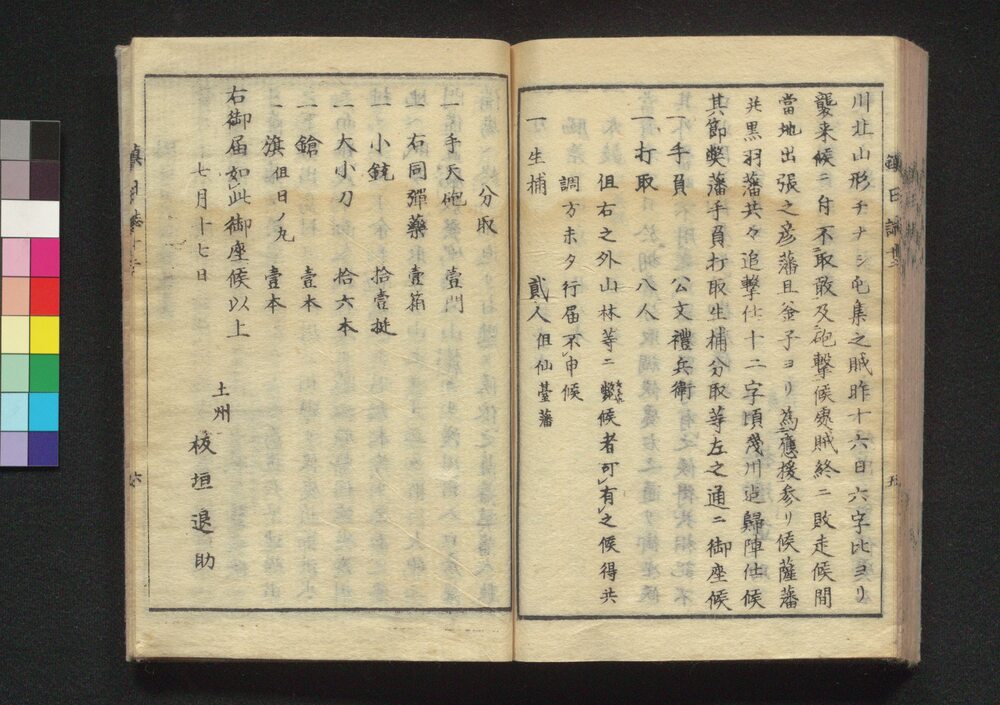 川北山形チナシ屯集之賊昨十六日六字比ヨリ
襲来候ニ付不取敢及砲撃候處賊終ニ敗走候間
當地出張之彦藩且釜子ヨリ為應援参リ候薩藩
共黒羽藩共々追撃仕十二字頃幾川迠歸陣仕候
其節弊藩手負打取生捕分取等左之通ニ御座候
一手負 公文禮兵衛
一打取 八人
但右之外山林等ニ斃候者可有之候得共
調方未タ行届不申候
一生捕 貳人但仙臺藩
鎮日誌
五
分取
一手天砲 壹門
一右同彈藥 壹箱
一小銃 拾壹挺
一大小刀 拾六本
一鎗 壹本
一旗但日ノ丸 壹本
右御届如此御座候以上
七月十七日
土州
板垣退助
鎮日誌
六